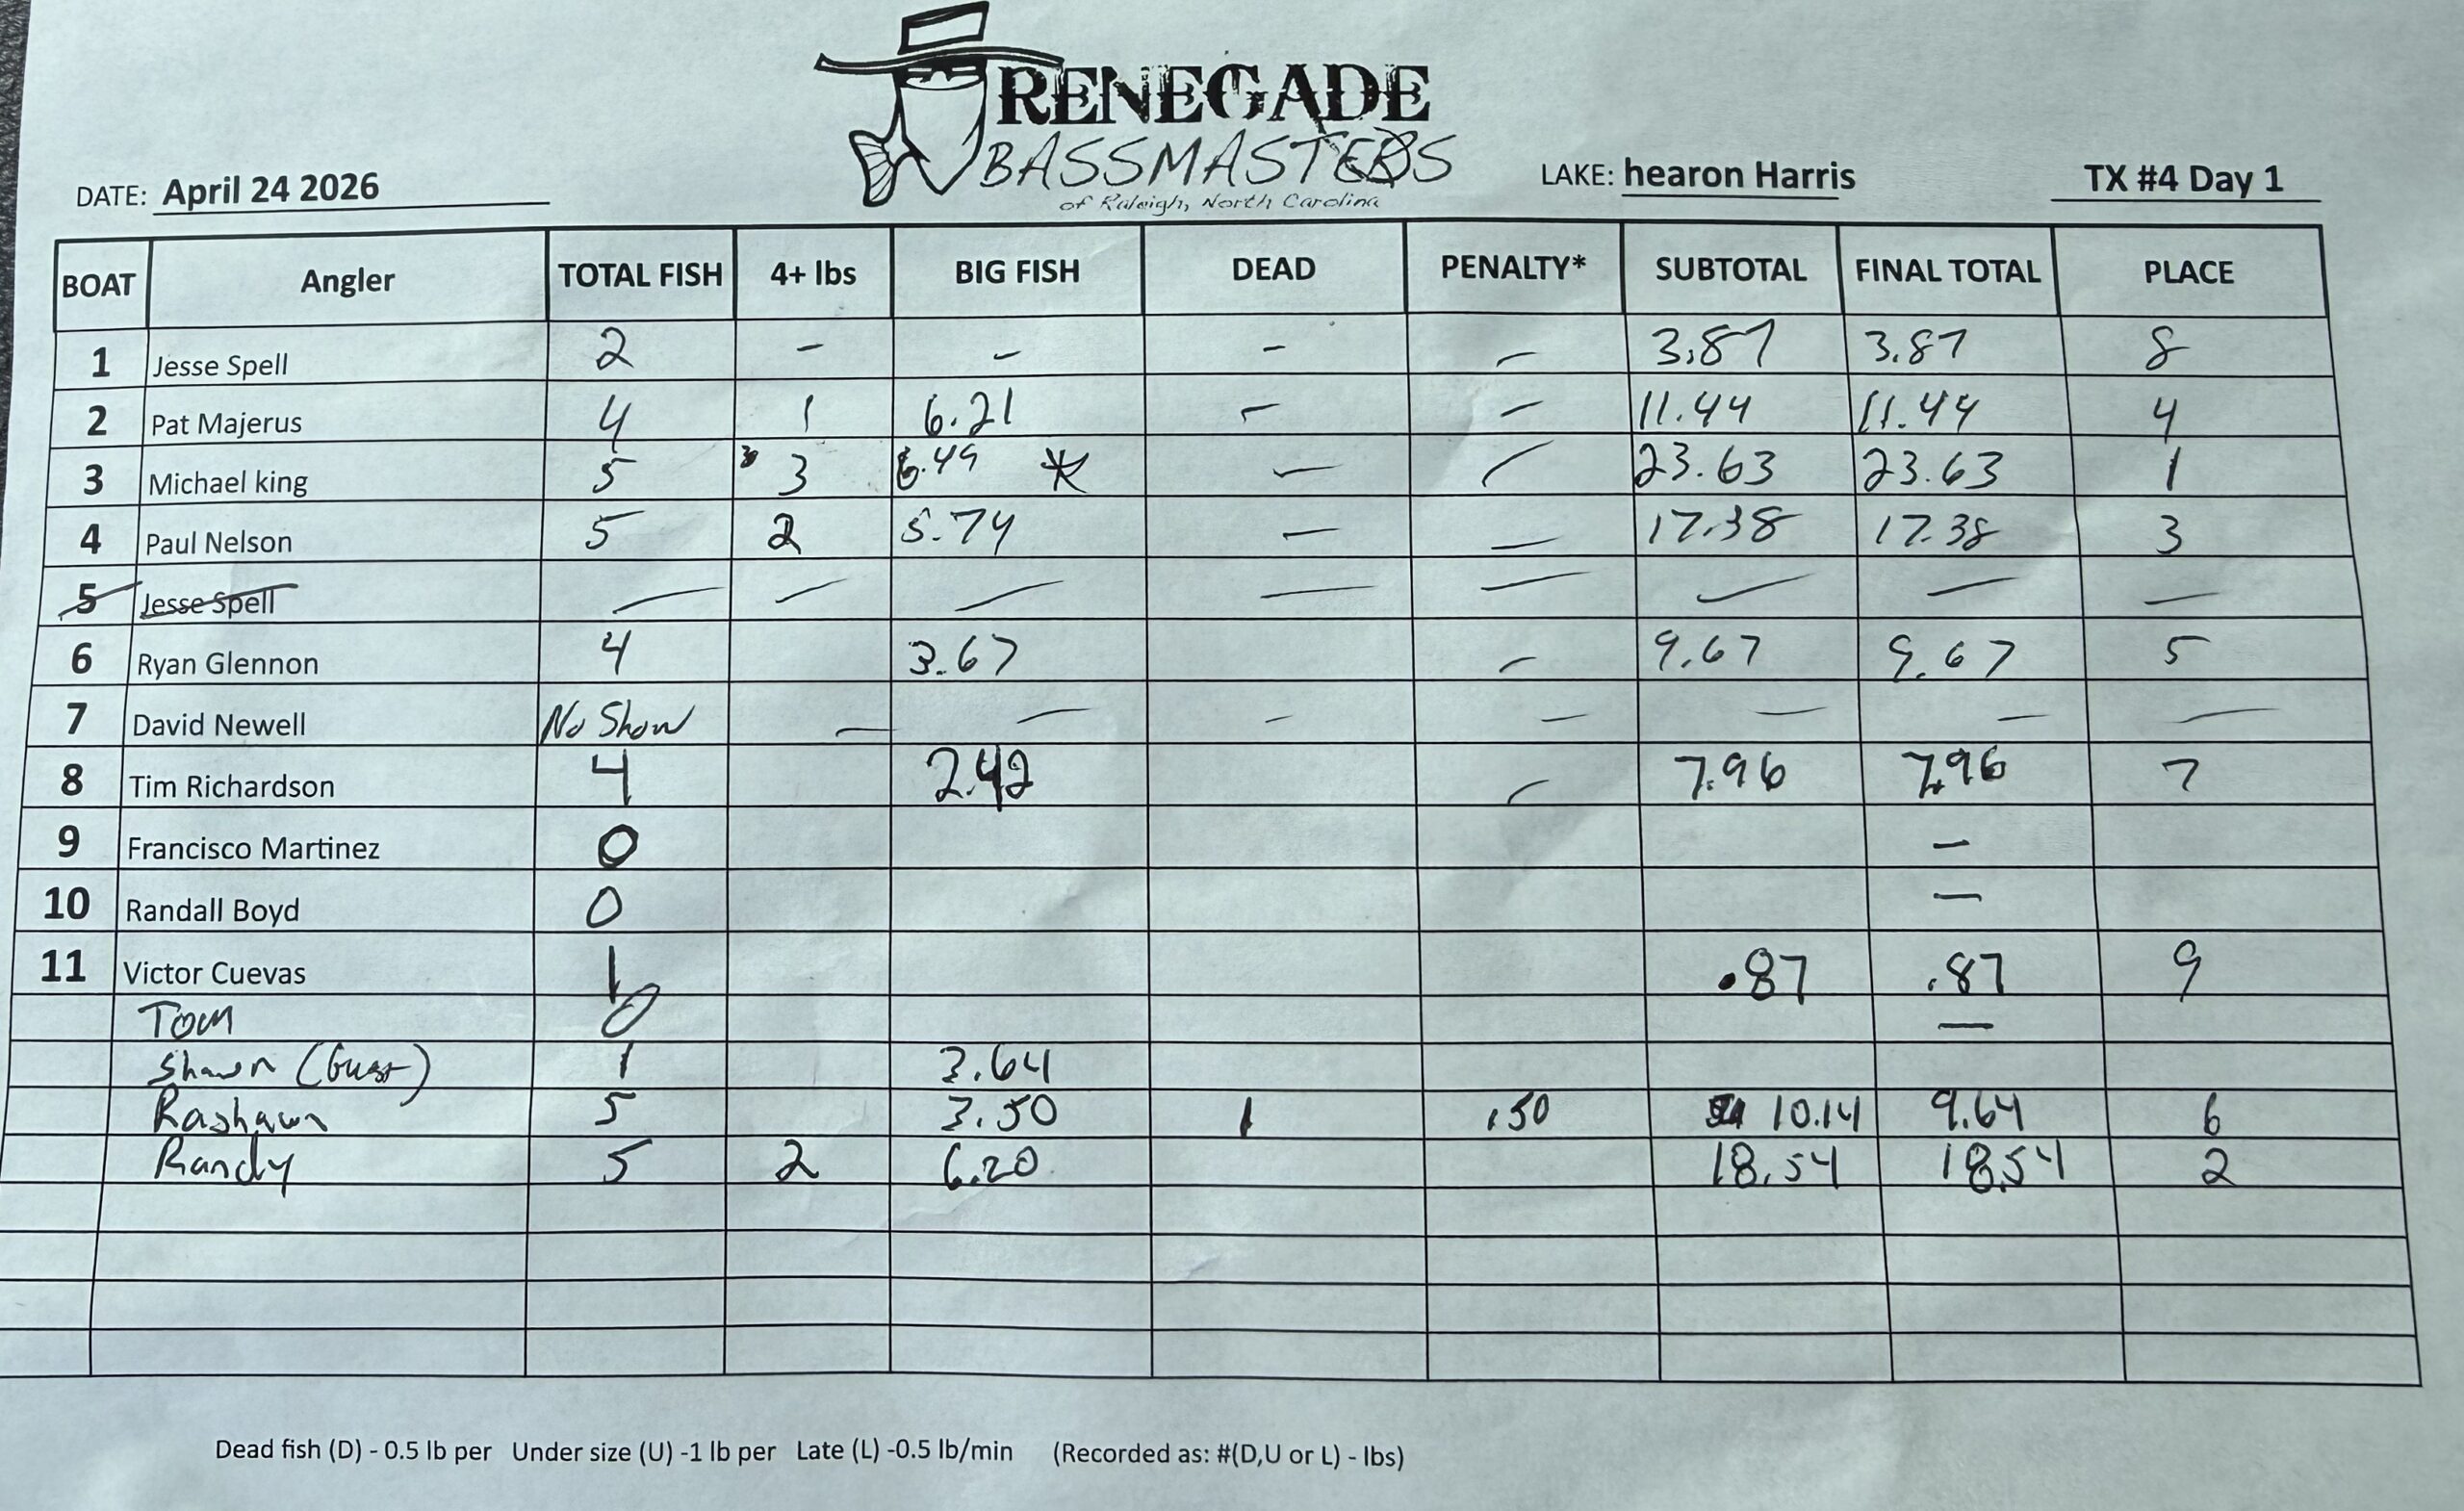 RENEGADE
BASSMASTERS
of Raleigh, North Carolina
DATE: April 24 2026 LAKE: hearon Harris TX #4 Day 1
BOAT Angler TOTAL FISH 4+ lbs BIG FISH DEAD PENALTY* SUBTOTAL FINAL TOTAL PLACE
1 Jesse Spell 2 - - - - 3.87 3.87 8
2 Pat Majerus 4 1 6.21 - - 11.44 11.44 4
3 Michael king 5 3 6.49 * - - 23.63 23.63 1
4 Paul Nelson 5 2 5.74 - - 17.38 17.38 3
5 Jesse Spell - - - - - - - -
6 Ryan Glennon 4 3.67 - 9.67 9.67 5
7 David Newell No Show - - - - - - -
8 Tim Richardson 4 2.42 - 7.96 7.96 7
9 Francisco Martinez 0 -
10 Randall Boyd 0 -
11 Victor Cuevas 1 .87 .87 9
Tom 0 -
Shawn (Guest) 1 3.64
Rashawn 5 3.50 1 .50 10.14 9.64 6
Randy 5 2 6.20 18.54 18.54 2
Dead fish (D) - 0.5 lb per Under size (U) -1 lb per Late (L) -0.5 lb/min (Recorded as: #(D,U or L) - lbs)